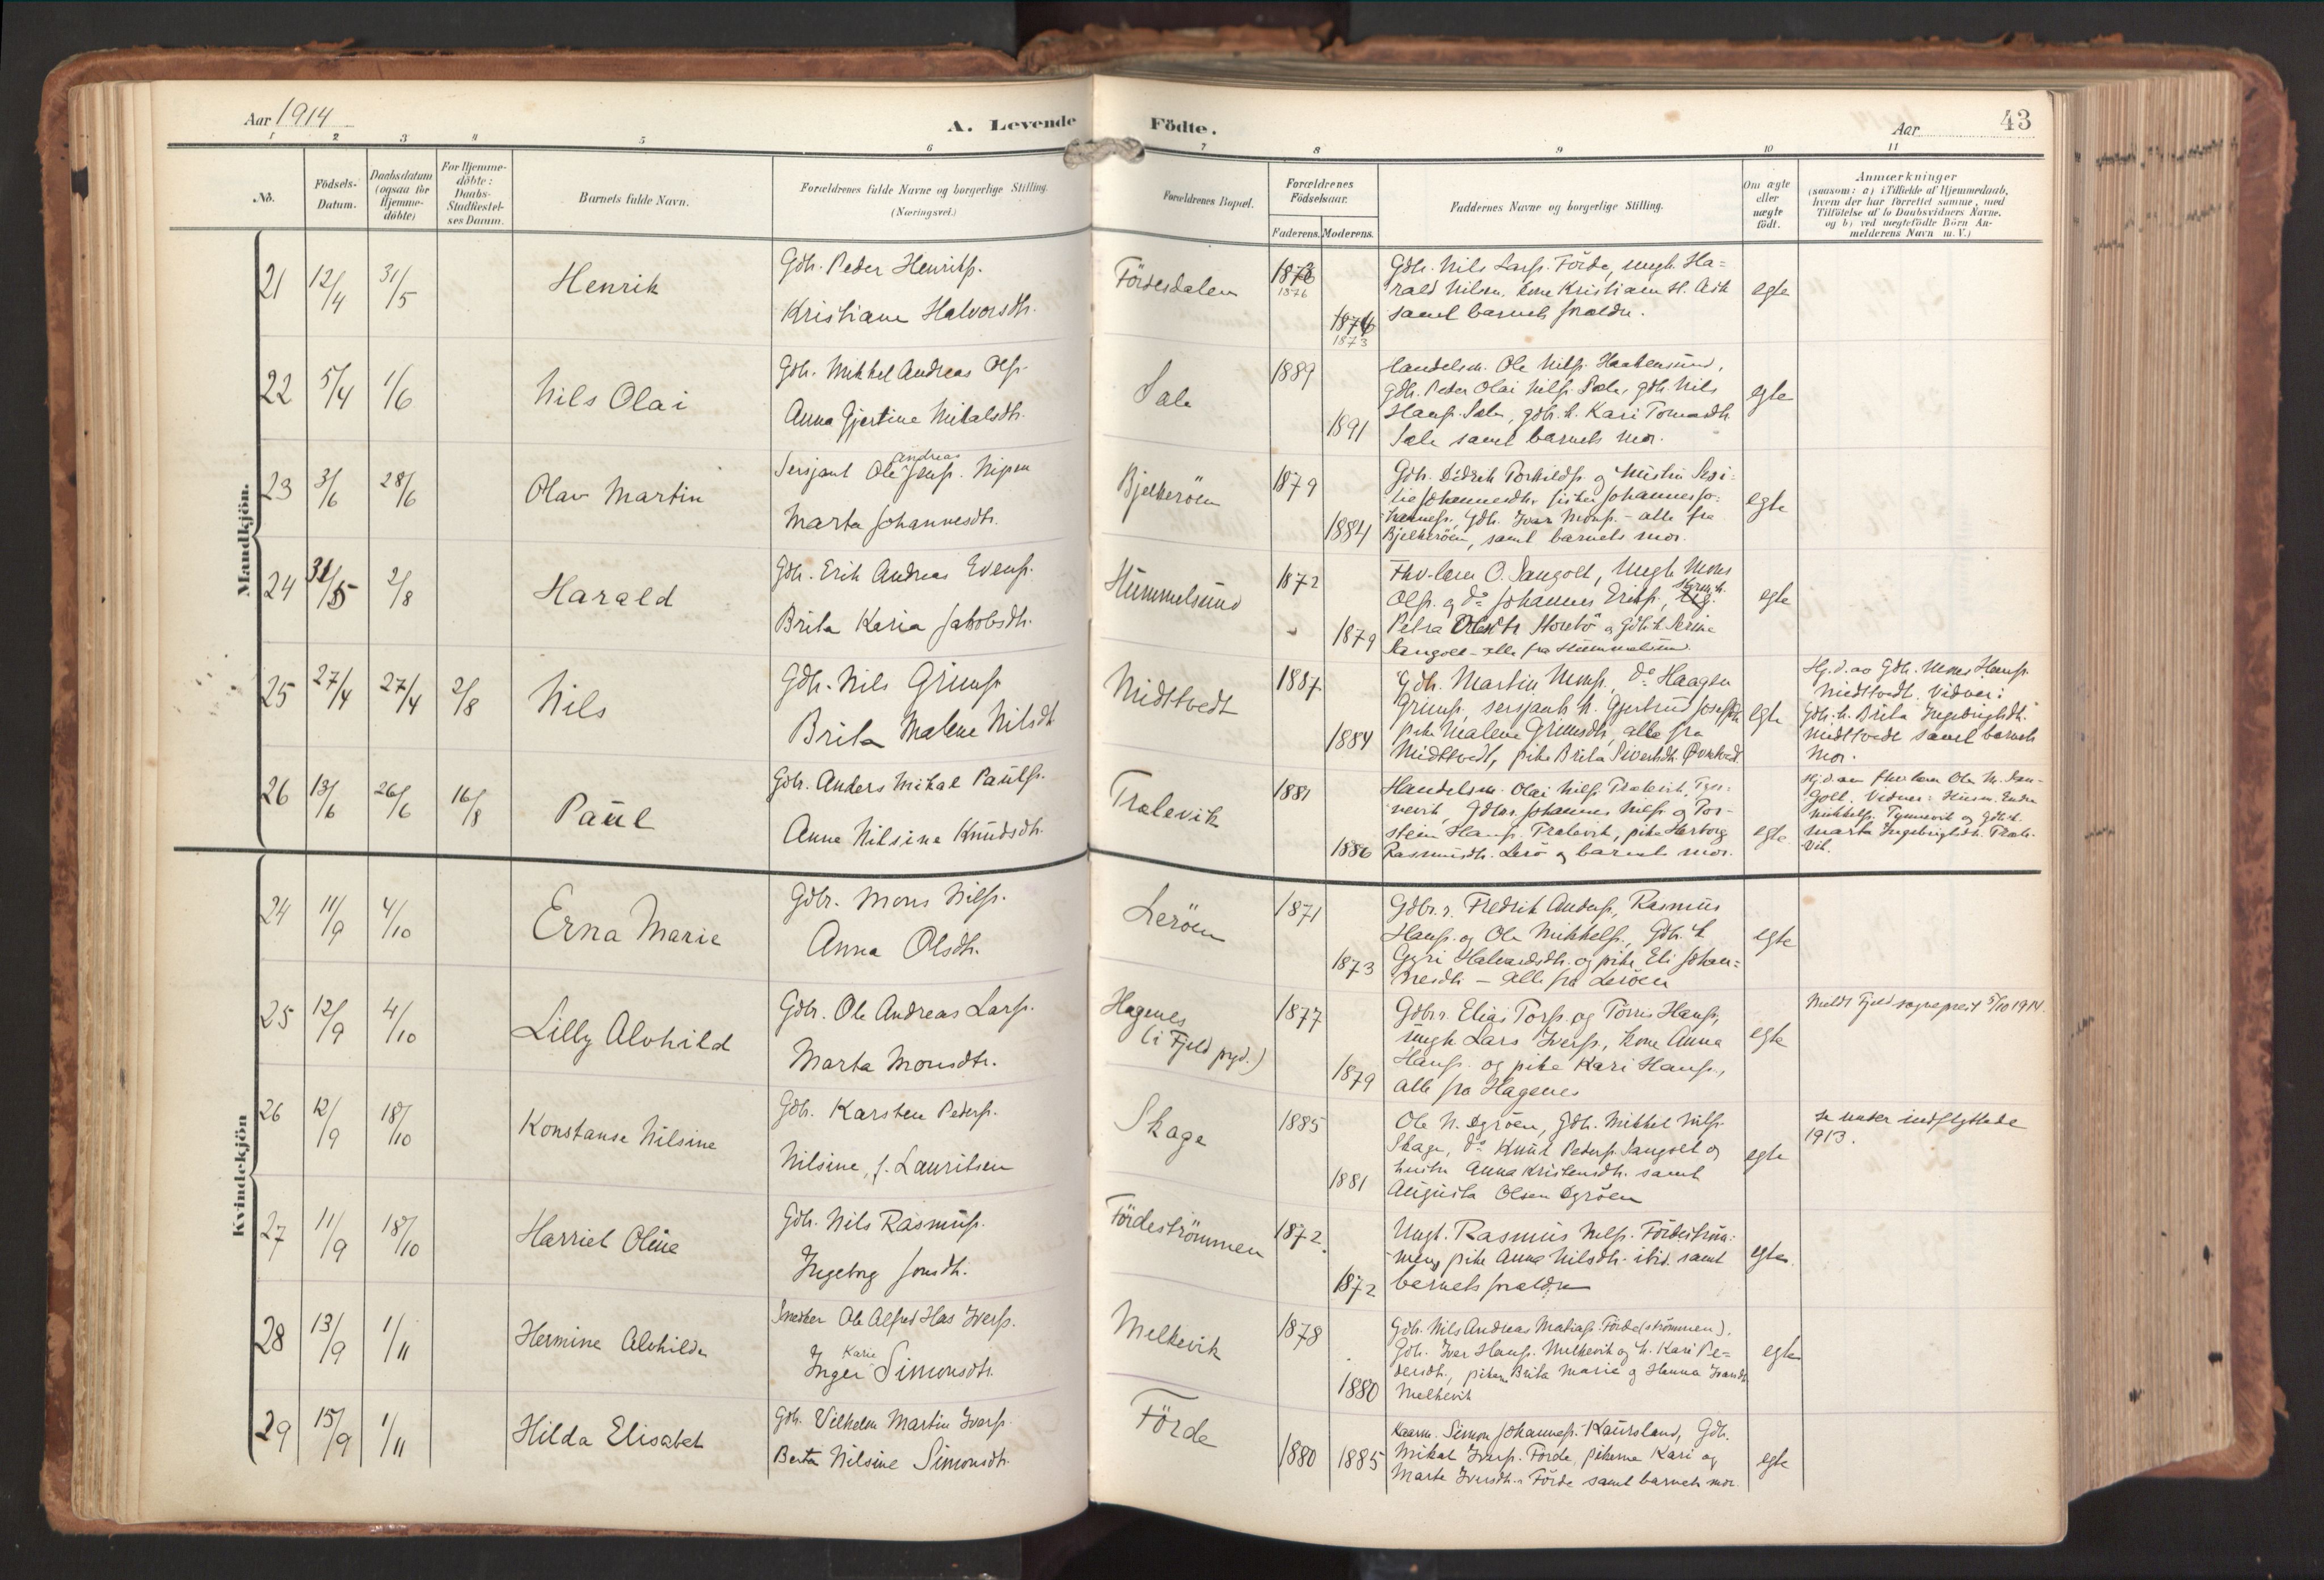 Aar 1914
A. Levende Födte.
Aar
43
1 2 3 4 5 6 7 8 9 10 11
No.
Födsels-Datum.
Daabsdatum (ogsaa for Hjemme-döbte)
For Hjemme-döbte: Daabs-Stadfæstel-ses Datum.
Barnets fulde Navn.
Forældrenes fulde Navne og borgerlige Stilling.
(Næringsvei.)
Forældrenes Bopæl.
Forældrenes Födselsaar.
Faderens. Moderens.
Faddernes Navne og borgerlige Stilling.
Om ægte eller uægte födt.
Anmærkninger
(saasom: a) i Tilfælde af Hjemmedaab,
hvem der har forrettet samme, med
Tilföielse af to Daabsvidners Navne.
og b) ved uegtefödte Börn An-
melderens Navn m. V.)
Mandkjön.
21 12/4 31/5 Henrik
Gdb. Peder Henriksen.
Kristiane Halvorsdtr.
Fördesdalen
1876
1873
Gdbr. Nils Larss. Förde, ungk. Ha=
rald Nilsen, kone Kristiane H. Ask
samt barnets foraldre.
egte
22 5/4 1/6 Nils Olai
Gdb. Mikkel Andreas Olss.
Anna Gjertine Mikalsdtr.
Sæle
1889
1891
Handelsm. Ole Nilss. Haakensund,
gdb. Peder Olai Nilss. Sæle, gdb. Nils
Hanss. Sæle, gdbr. k. Kari Tomasdtr.
Sæle samt barnets mor.
egte
23 3/6 28/6 Olav Martin
Sersjant Ole Andreas Jenss. Nipen
Marta Johannesdtr.
Bjelkeröen
1879
1884
Gdb. Didrik Torkildss. og hustru Sesi-
lie Johannesdtr. fisker Johannes Jo-
hanness., Gdb. Ivar Monss. - alle fra
Bjelkeröen, samt barnets mor.
egte
24 31/5 2/8 Harald
Gdb. Erik Andreas Evenss.
Brita Karia Jakobsdtr.
Hummelsund
1872
1879
Fhv. lærer O. Sangolt, Ungk Mons
Olss. og do Johannes Erikss.,
Petra Olsdtr Storebö og Gdb. k. Serine
Sangolt - alle fra Hummelsund.
egte
25 27/4 27/4 2/8 Nils
Gdb. Nils Grimss.
Brita Malene Nilsdtr
Midttvedt
1887
1884
Gdb. Martin Monss., do Haagen
Grimss., sersjants k. Gjertrud Josefsdtr.
pike Malene Grimsdtr. alle fra
Midttvedt, pike Brita Sivertsdtr.
egte
Hj.d. av Gdb. Mons Hanss.
Midttvedt. Vidner:
Gdb. k. Brita Ingebrigtsdtr.
Midttvedt samt barnets
mor.
26 13/6 26/6 16/8 Paul
Gdb. Anders Mikal Paulss.
Anne Nilsine Knudsdtr.
Tralevik
1881
1886
Handelsm. Olai Nilss. Tralevik, Tyss-
nevik, Gdbr. Johannes Nilss. og Tor-
stein Hanss. Tralevik, pike Herborg
Rasmusdtr. Lerö og barnets mor.
egte
Hj.d. av fhv. lærer Ole M. San-
golt. Vidner: Husm. Endre
Mikkelss. Tyssnevik og Gdb. k.
Marta Ingebrigtsdtr. Trale-
vik.
Kvindekjön
24 11/9 4/10 Erna Marie
Gdbr. Mons Nilss.
Anna Olsdtr.
Leröen
1871
1873
Gdbr.r. Fredrik Anderss., Rasmus
Hanss. og Ole Mikkelss., Gdb. k
Gyri Halvardsdtr. og pike Eli Johan=
nesdtr - alle fra Leröen
egte
25 12/9 4/10 Lilly Alvhild
Gdbr. Ole Andreas Larss.
Marta Monsdtr.
Hagenes
(i Fjeld prgd.)
1877
1879
Gdbrr. Elias Torss. og Törris Hanss,
ungk Lars Iverss., kone Anna
Hanss. og pike Kari Hanss.,
alle fra Hagenes
egte
Meldt Fjeld sogneprest 5/10 1914.
26 12/9 18/10 Konstanse Nilsine
Gdb. Karsten Pederss.
Nilsine, f. Lauritsen
Skage
1885
1881
Ole N. Egröen, Gdb. Mikkel Nilss.
Skage, do Knut Pederss. Sangolt og
hustru Anna Kristensdtr. samt
Augusta Olsen Egröen
egte
se under indflyttede
1913.
27 11/9 18/10 Harriet Oline
Gdb. Nils Rasmuss.
Ingeborg Jonsdtr.
Fördeströmmen
1872.
1872
Ungk. Rasmus Nilss. Fördeström-
men, pike Anna Nilsdtr. ibid. samt
barnets foraldre
egte.
28 13/9 1/11 Hermine Alvhilde
Snedker Ole Alfred Has Iverss.
Inger Karie Simonsdtr.
Melkevik
1878
1880
Gdb. Nils Andreas Matiass. Förde(strömmen).
Gdb. Iver Hanss. Melkevik og k. Kari Pe=
dersdtr., pikerne Brita Marie og Hanna Ivarsdtr
Melkevik
egte
29 15/9 1/11 Hilda Elisabet
Gdb. Vilhelm Martin Ivarss.
Berta Nilsine Simonsdtr.
Förde
1880 1885
Kaarm. Simon Johanness. Kaursland, Gdb.
Mikal Ivarss. Förde, pikerne Kari og
Marta Iversdtr. Förde samt barnets mor.
egte